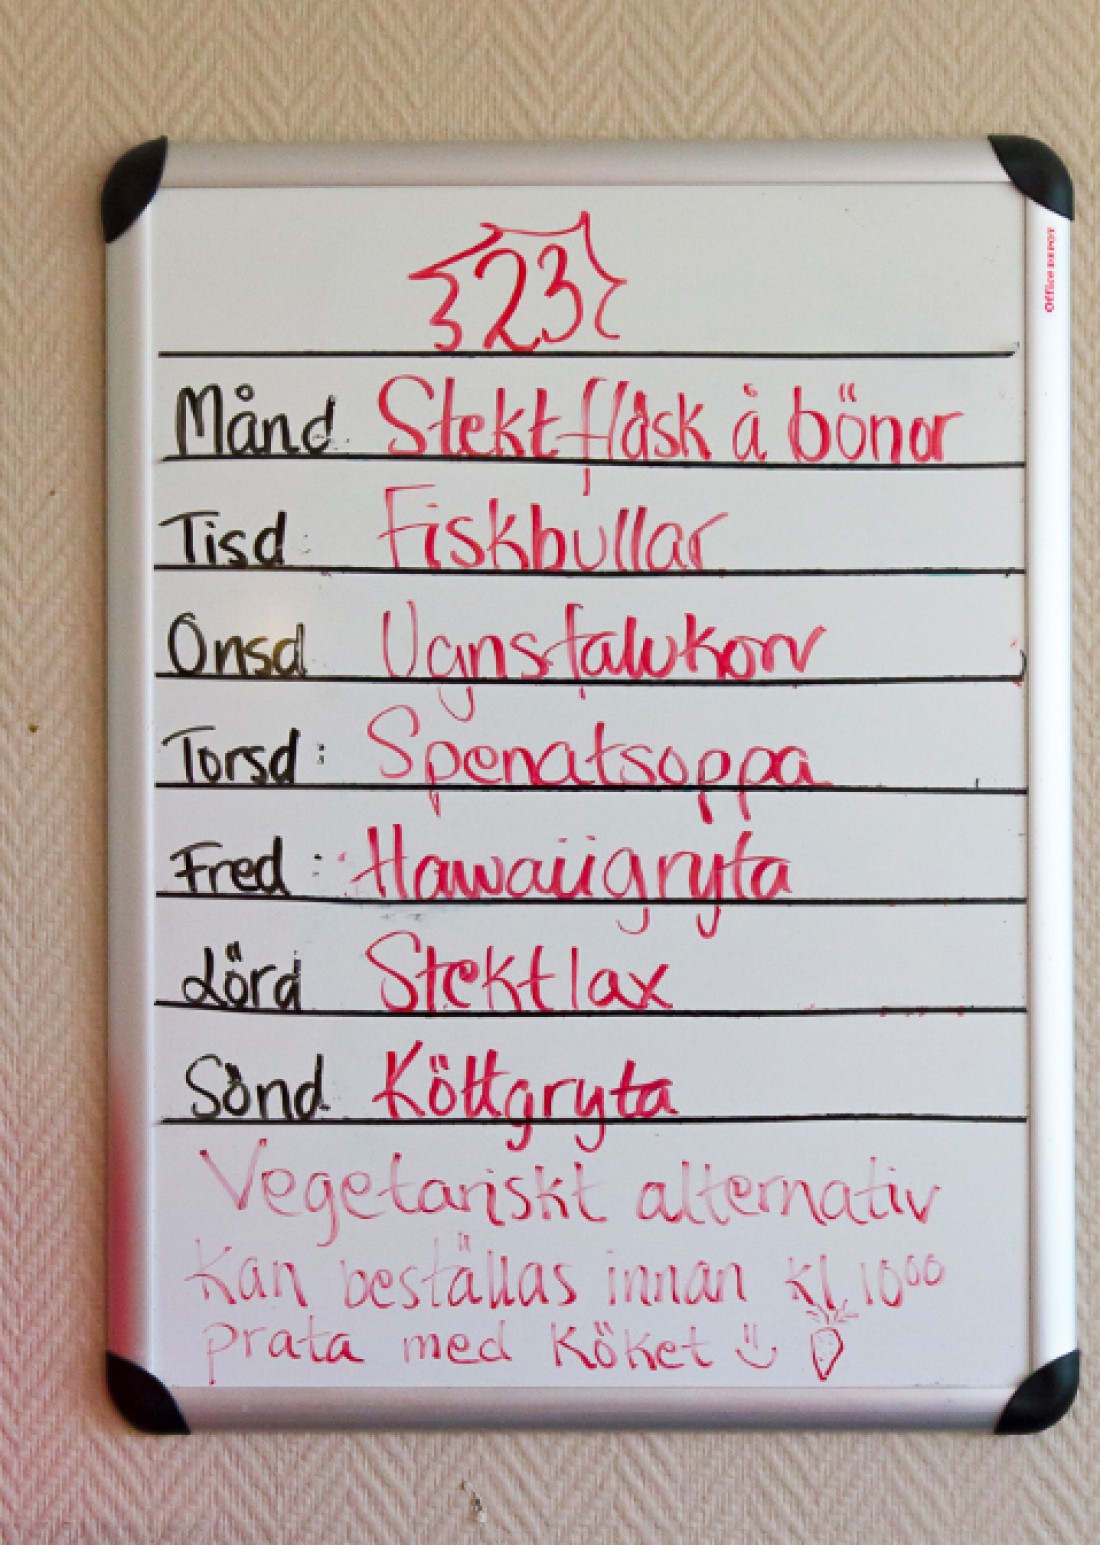 23
Office DEPOT
Månd Stekt fläsk å bönor
Tisd: Fiskbullar
Onsd Ugnsfalukorv
Torsd: Spenatsoppa
Fred: Hawaiigryta
Lörd Stekt lax
Sönd Köttgryta
Vegetariskt alternativ
kan beställas innan kl 10⁰⁰
prata med köket